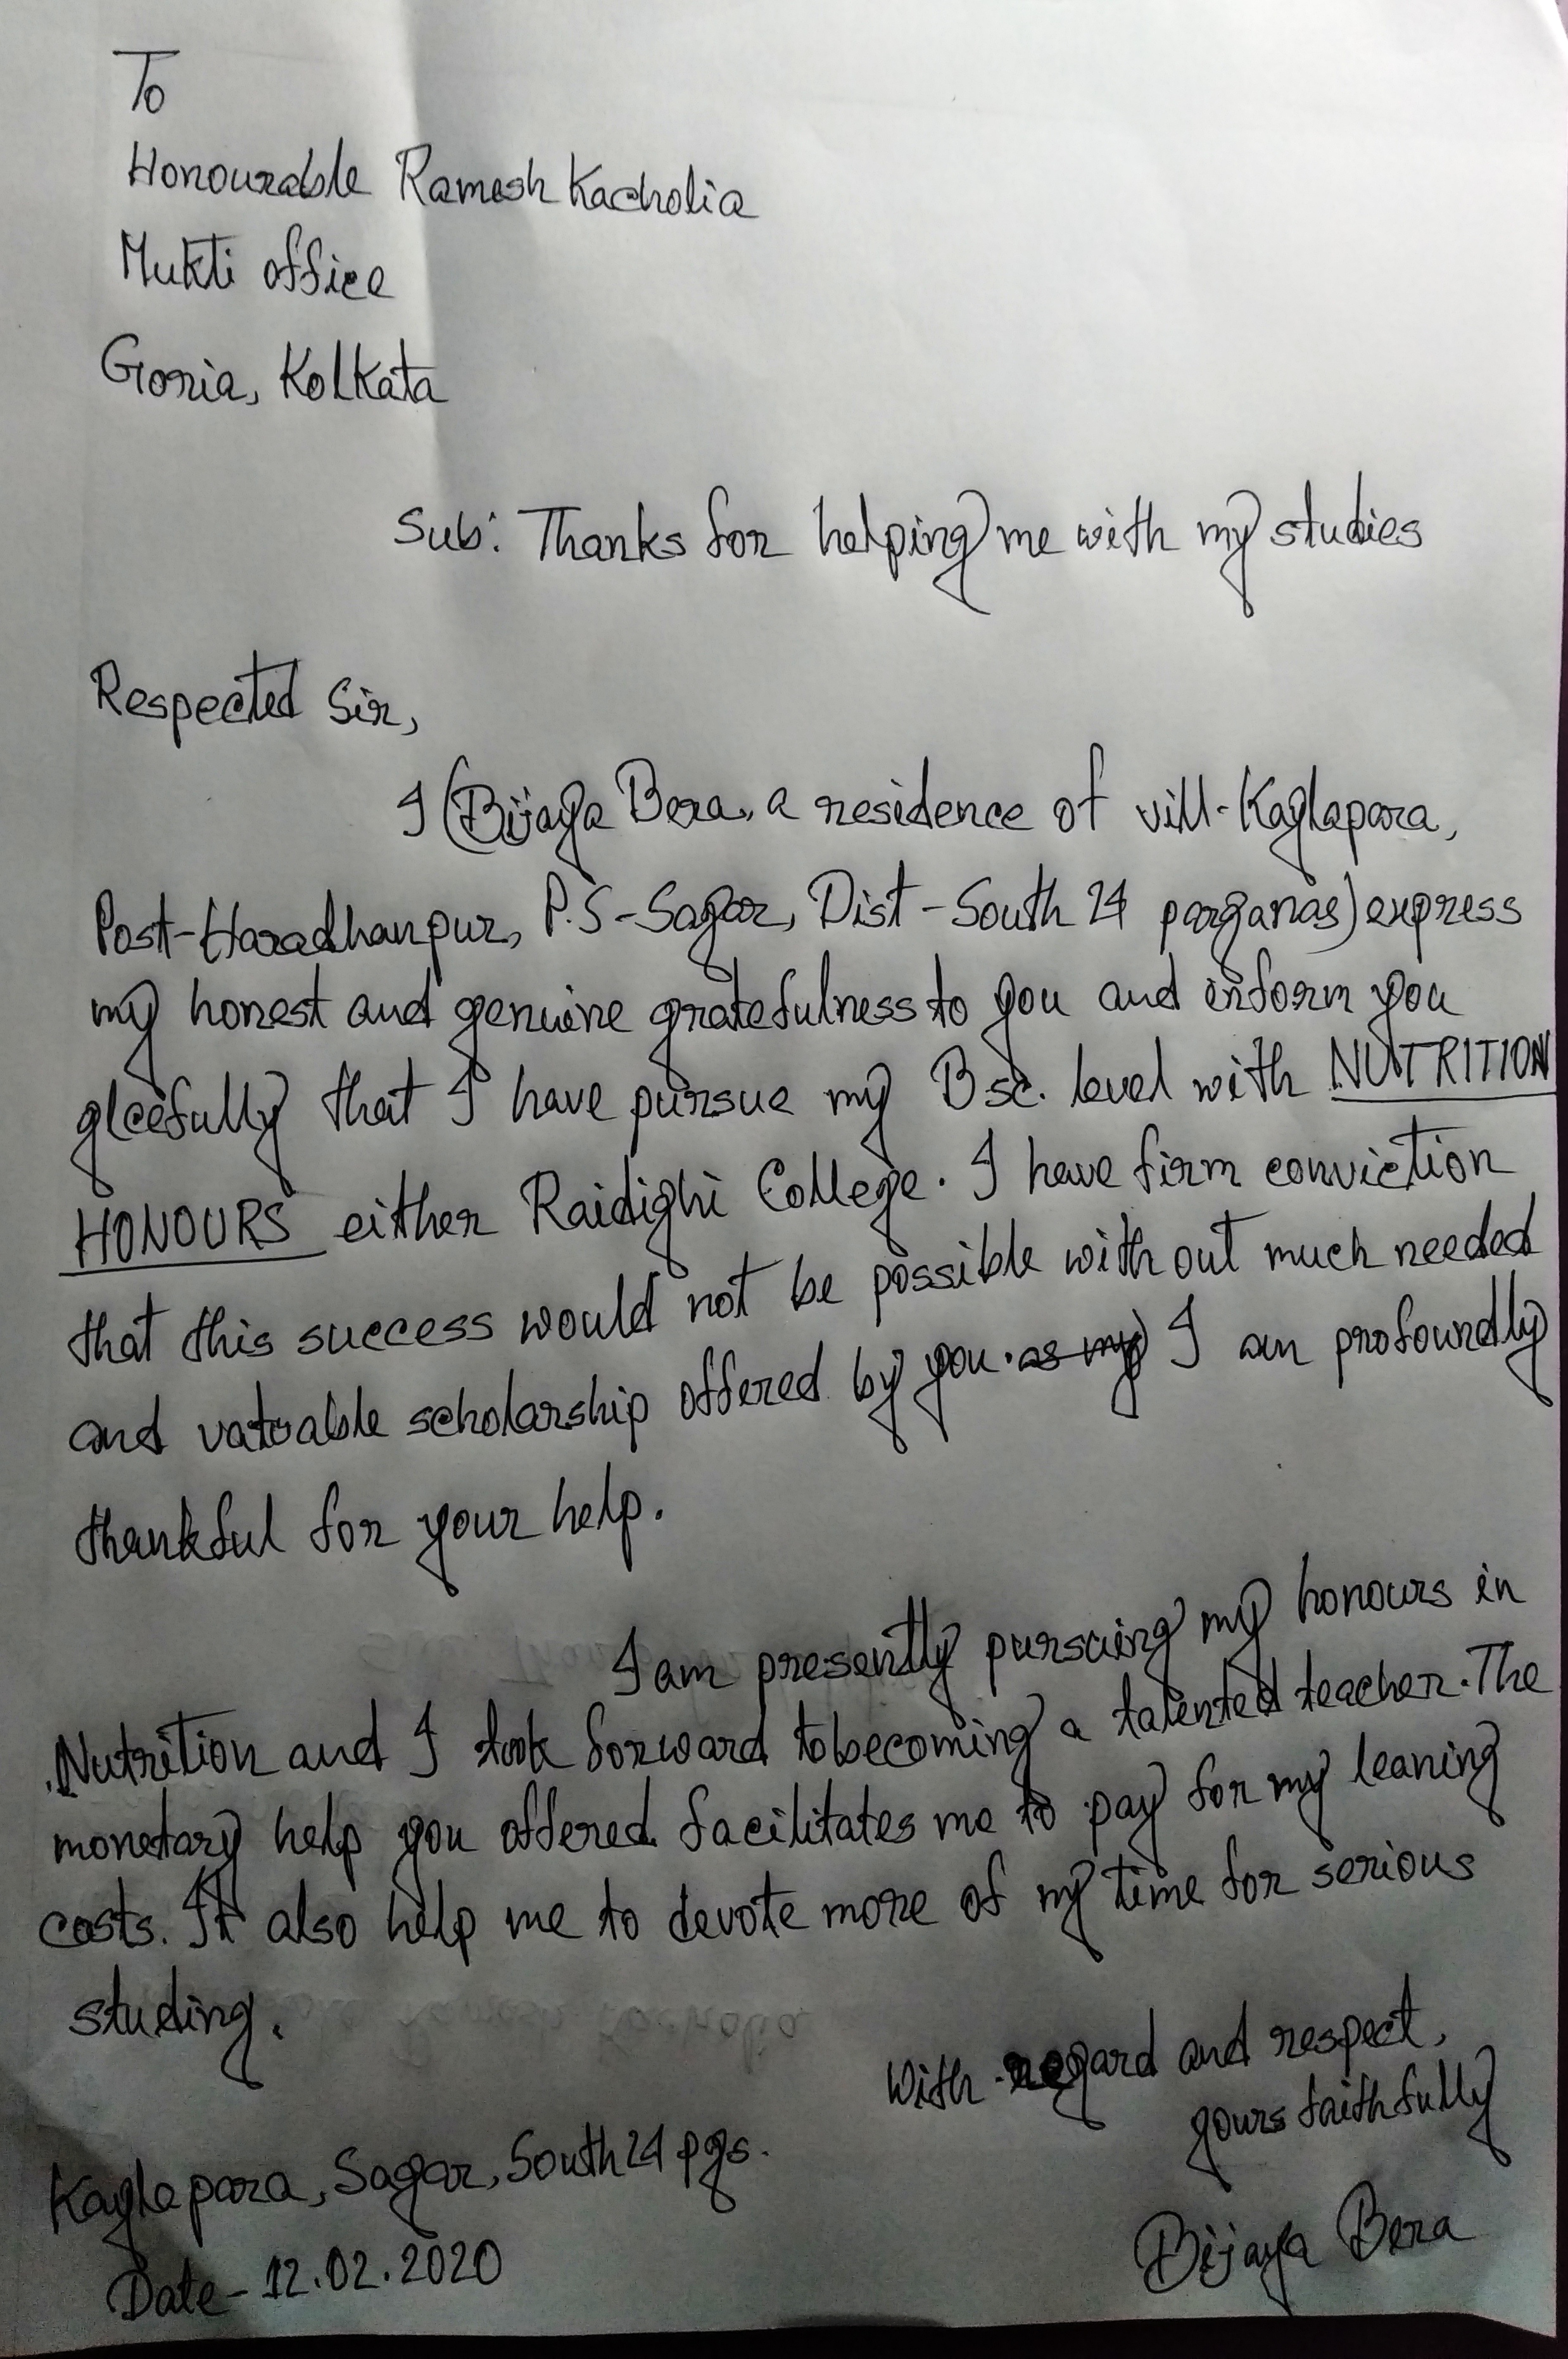 To
Honourable Ramesh Kacholia
Mukti office
Goria, Kolkata
Sub: Thanks for helping me with my studies
Respected Sir,
I (Bijaya Bera, a residence of vill-Kaylapara,
Post-Haradhanpur, P.S-Sagar, Dist-South 24 parganas) express
my honest and genuine gratefulness to you and inform you
gleefully that I have pursue my Bsc. level with NUTRITION
HONOURS either Raidighi College. I have firm conviction
that this success would not be possible without much needed
and valuable scholarship offered by you. as my I am profoundly
thankful for your help.
I am presently pursuing my honours in
Nutrition and I look forward to becoming a talented teacher. The
monetary help you offered facilitates me to pay for my leaning
costs. It also help me to devote more of my time for serious
studing.
With regard and respect,
yours faithfully
Kaylapara, Sagar, South 24 pgs.
Bijaya Bera
Date- 12.02.2020